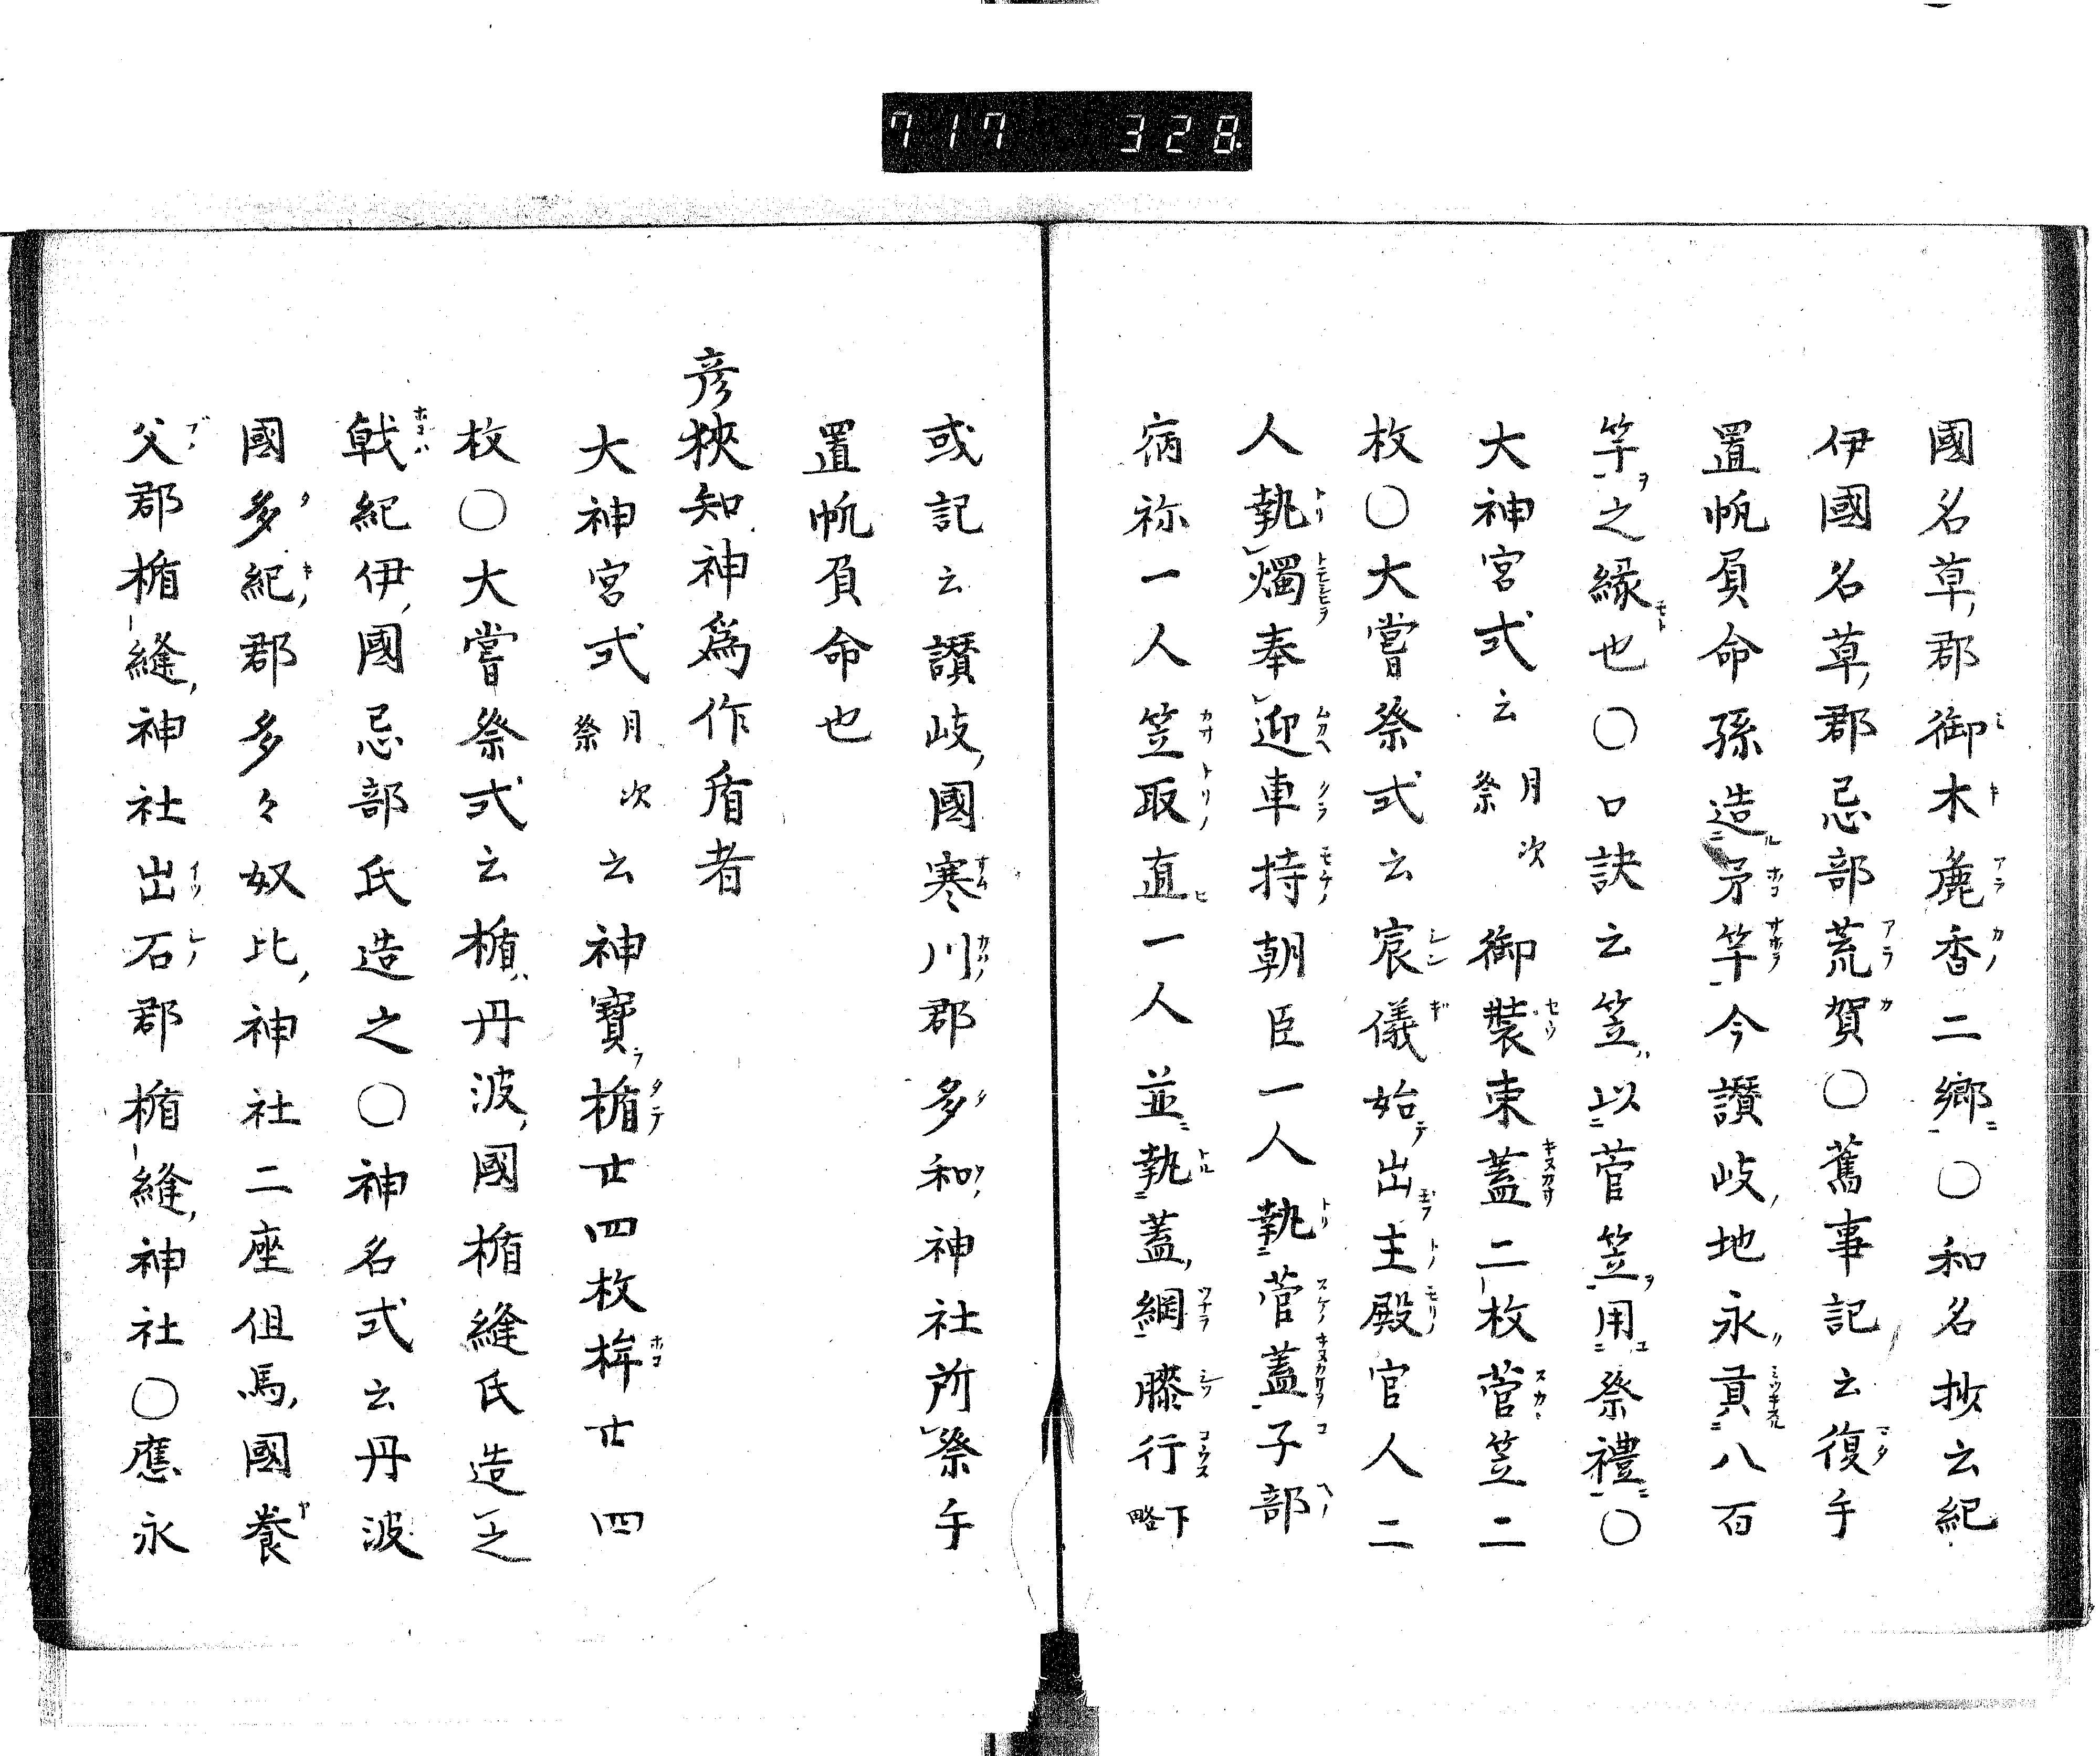 717 328
國名草郡御木麁香二郷○和名抄云紀
伊國名草郡忌部荒賀○舊事記云復手
置帆負命孫造矛竿今讃岐地永貢八百
竿之縁也○口訣云笠以菅笠用祭禮○
大神宮式云月次祭御裝束蓋二枚菅笠二
枚○大嘗祭式云宸儀始出主殿官人二
人執燭奉迎車持朝臣一人執菅蓋子部
病祢一人笠取直一人並執蓋綱膝行下略
或記云讃岐國寒川郡多和神社所祭手
置帆負命也
彦狹知神爲作盾者
大神宮式月次祭云神寶楯廿四枚桙廿四
枚○大嘗祭式云楯丹波國楯縫氏造之
戟紀伊國忌部氏造之○神名式云丹波
國多紀郡多々奴比神社二座但馬國養
父郡楯縫神社出石郡楯縫神社○應永